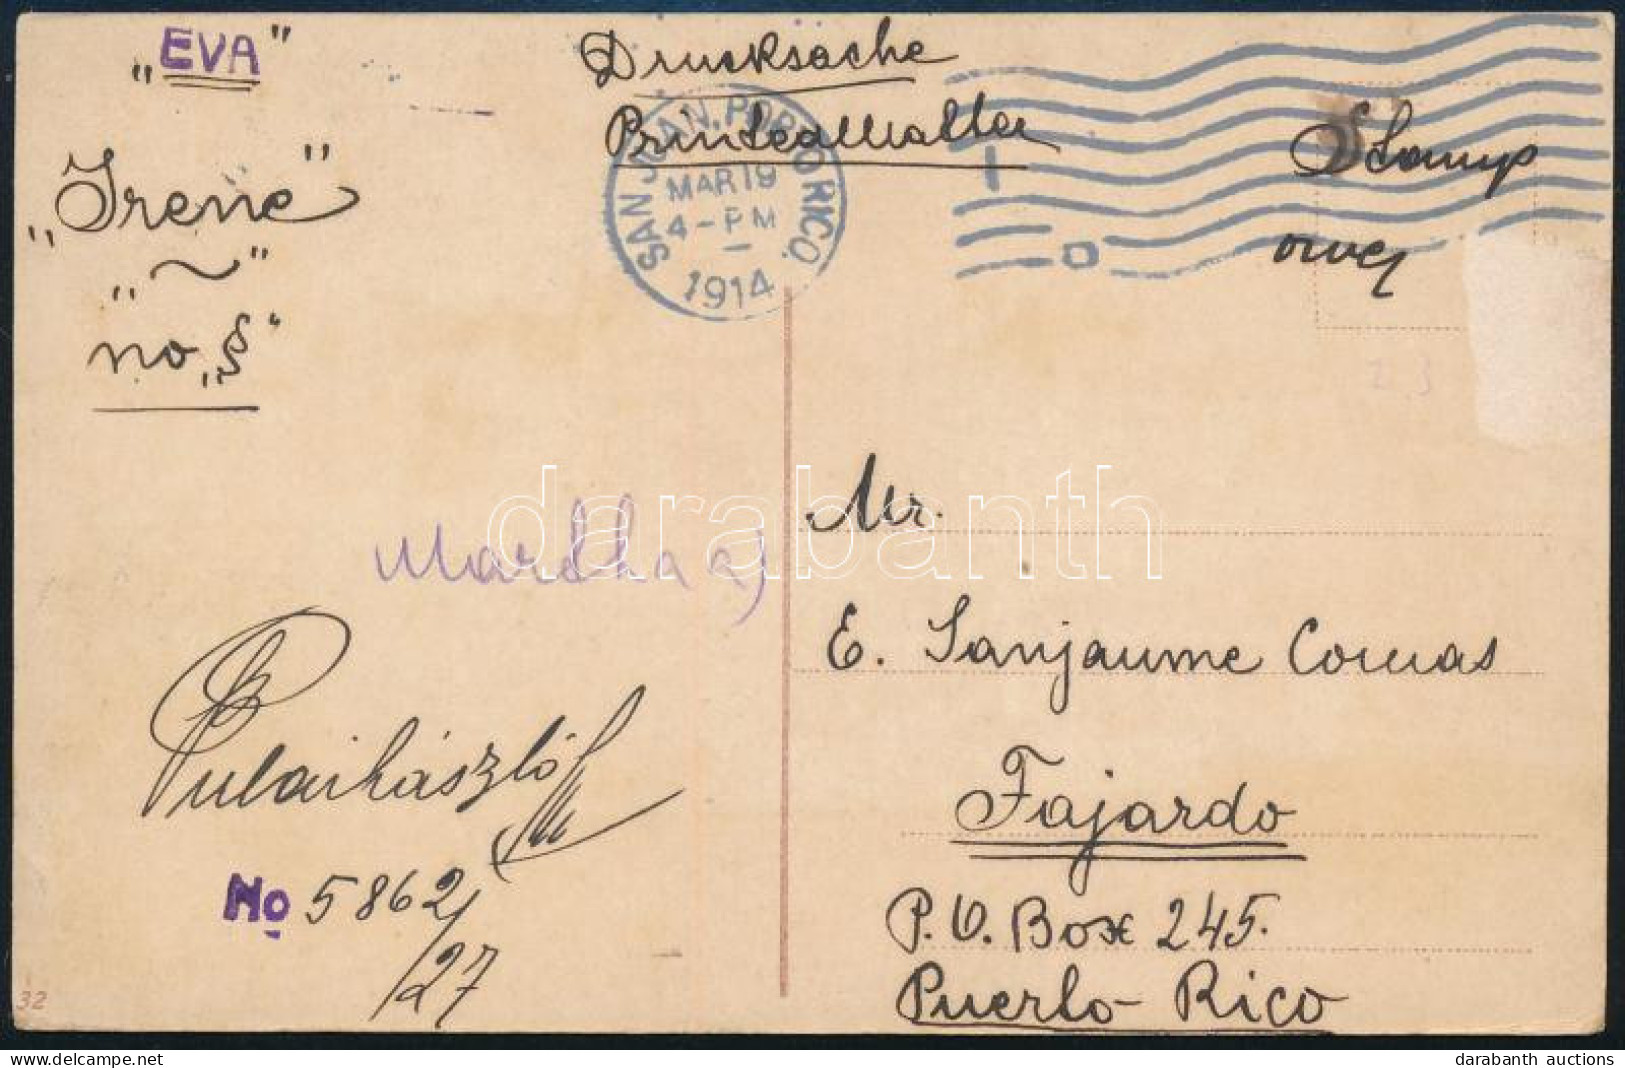 „EVA"
Drucksache
Printed Matter
Stamp
over
SAN JUAN, PORTO RICO.
MAR 19
4-PM
1914
„Irene"
„~"
no „§"
darabanth
Mr.
Martha a)
E. Sanjaume Comas
Fajardo
No 5862/
/27
P. O. Box 245.
Puerto-Rico
32
darabanth auctions